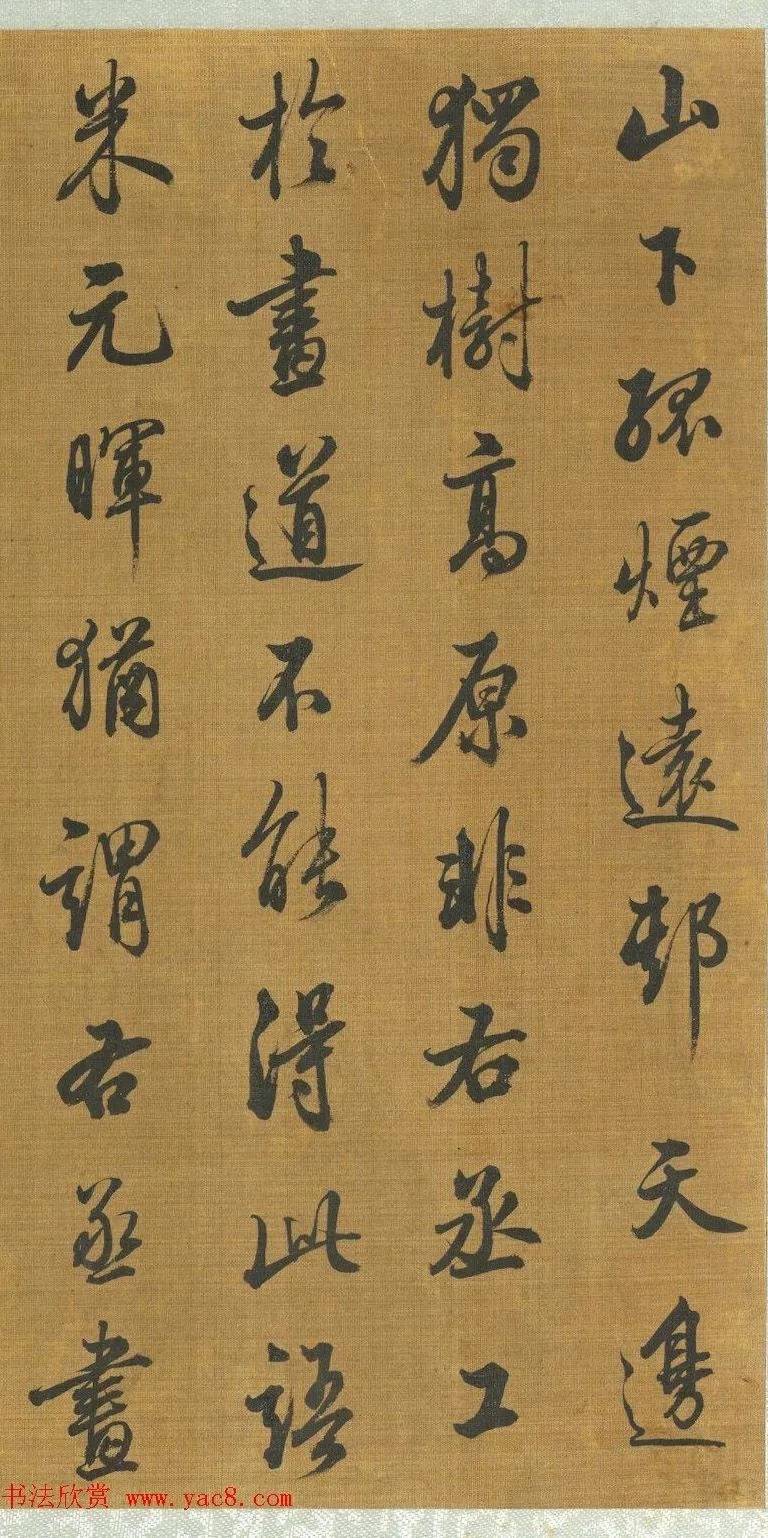 山下孤煙遠邨天邊
獨樹高原非右丞工
於畫道不能得此語
米元暉猶謂右丞畫
书法欣赏 www.yac8.com